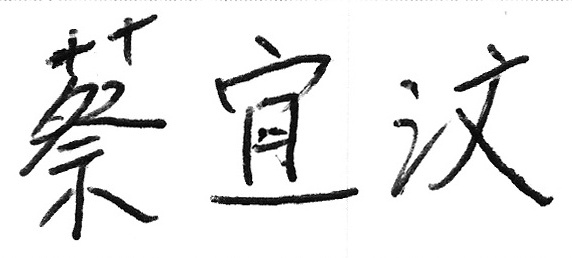 蔡宜汶